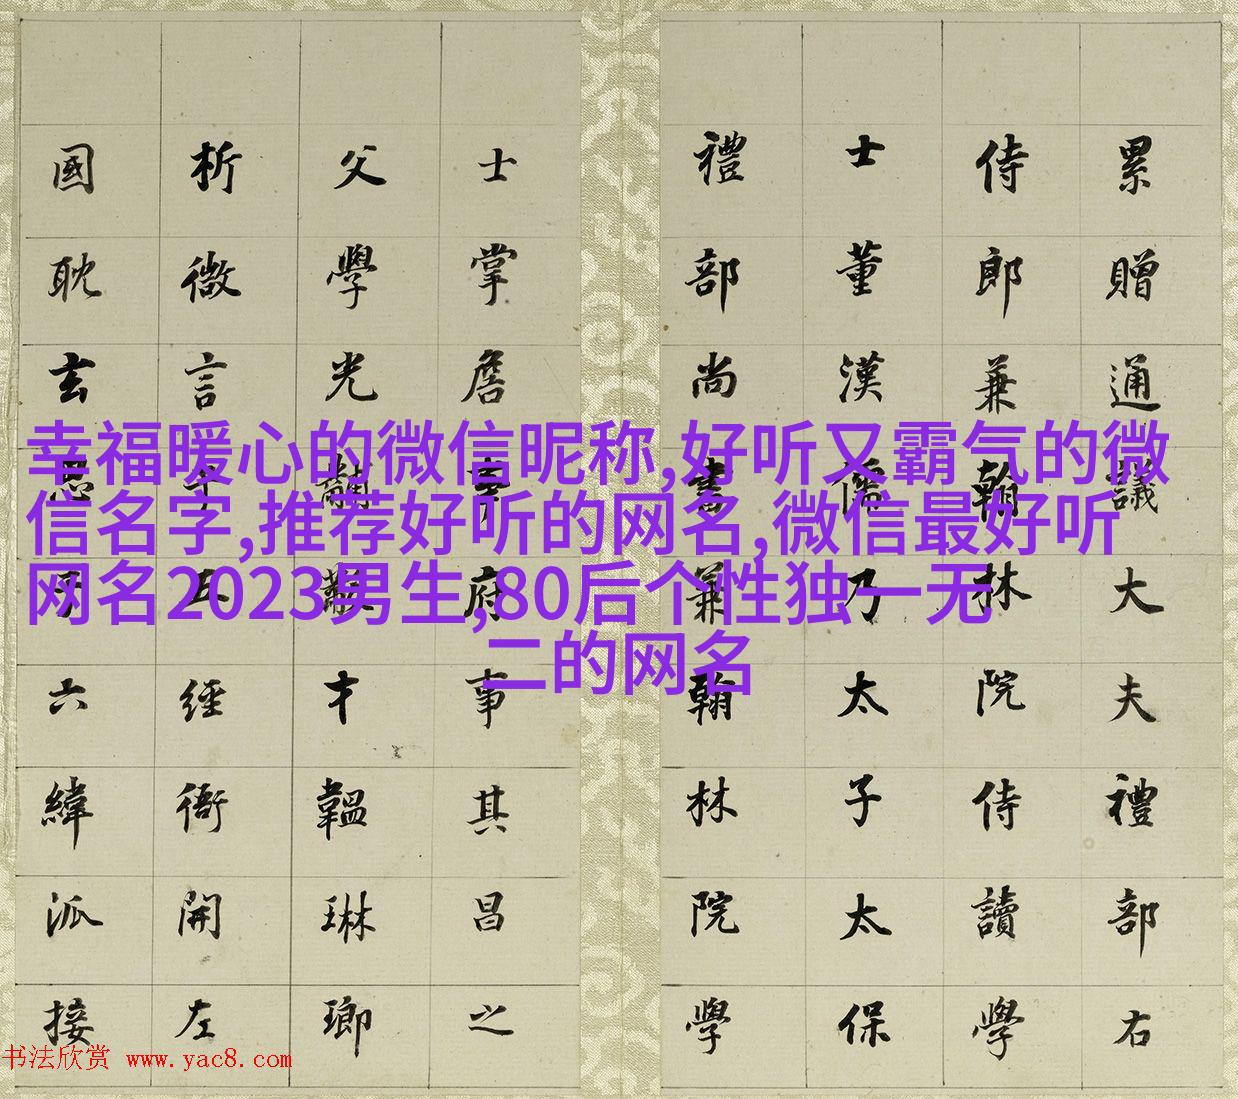 累贈通議大夫禮部右
侍郎兼翰林院侍讀學
士董漢儒乃太子太保
禮部尚書兼翰林院學
士掌詹事府事其昌之
父學光黼黻才韞琳瑯
析微言于五經衜開左
國耽玄思于六緯派接
幸福暖心的微信昵称,好听又霸气的微
信名字,推荐好听的网名,微信最好听
网名2023男生,80后个性独一无
二的网名
书法欣赏 www.yac8.com